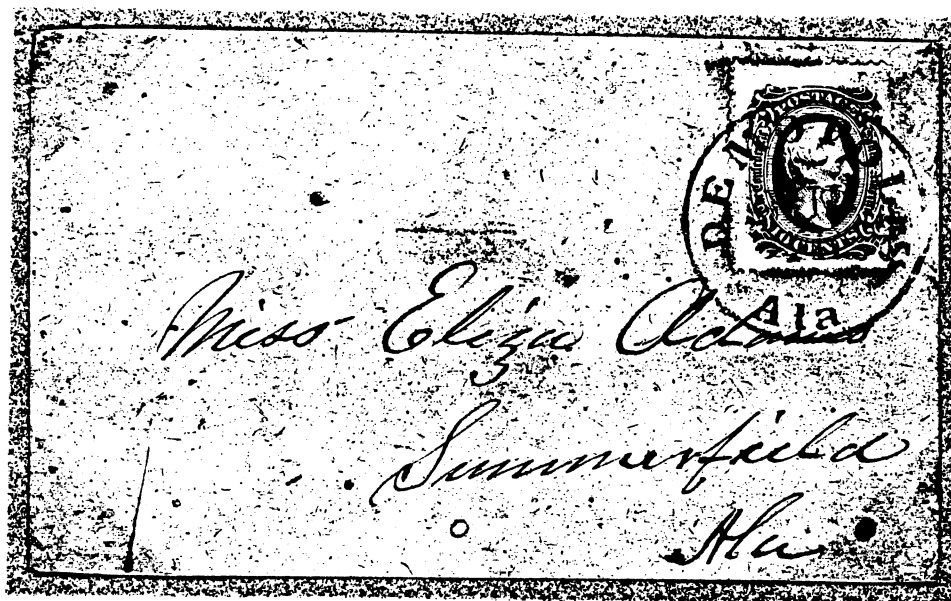 POSTAGE
DEMOPOLIS
Ala
Miss Eliza Adams
Summerfield
Ala